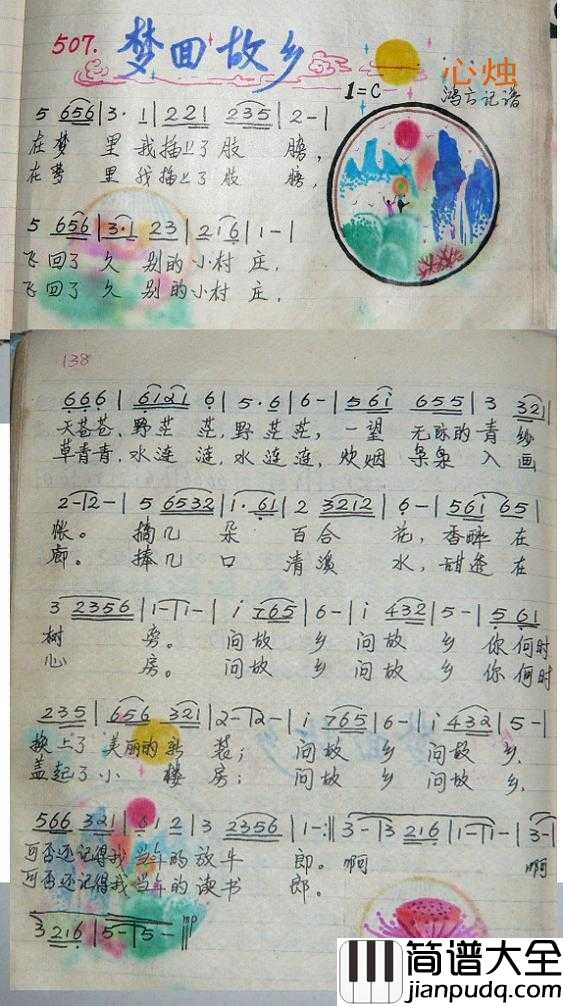 507. 梦回故乡
心烛
1=C 鸿云记谱
5 656 | 3· 1 | 2 2 1 2 3 5 | 2 - |
在梦 里 我插上了 肢 膀，
在梦 里 我插上了 肢 膀，
5 656 | 3·1 2 3 | 2 1 6 | 1 - |
飞回了 久 别的小村 庄，
飞回了 久 别的小村 庄．
138
6 6 6 | 6 1 2 1 6 | 5 · 6 | 6 - | 5 6 i 6 5 5 | 3 3 2 1 |
天苍苍，野茫 茫，野茫茫，一望 无际的青 纱
草青青，水涟 涟，水涟涟，炊烟 袅袅 入 画
2 - | 2 - | 5 6532 | 1· 61 | 2 3212 | 6 - | 5 6 i 6 5 |
帐。 摘几 朵 百合 花，香醉 在
廊。 捧几 口 清溪 水，甜透 在
3 2356 | 1 - | 1 - | i 765 | 6 - | i 432 | 5 - | 5 61 |
树 旁。 问故 乡 问故 乡 你何时
心 房。 问故 乡 问故 乡 你何时
2 3 5 | 656 321 | 2 - | 2 - | i 765 | 6 - | i 432 | 5 - |
换上了 美丽的新 装； 问故 乡 问故 乡．
盖起了小 楼 房； 问故 乡 问故 乡，
566 321 | 6 1 2 | 3 2356 | 1 - :‖ 3 - | 3 216 | 1 - | 1 - | 3 - |
可否还记得我当年的放牛 郎。 啊 啊
可否还记得我当年的读书 郎。
3 216 | 5 - | 5 - ‖ mp
简谱大全
www.jianpudq.com